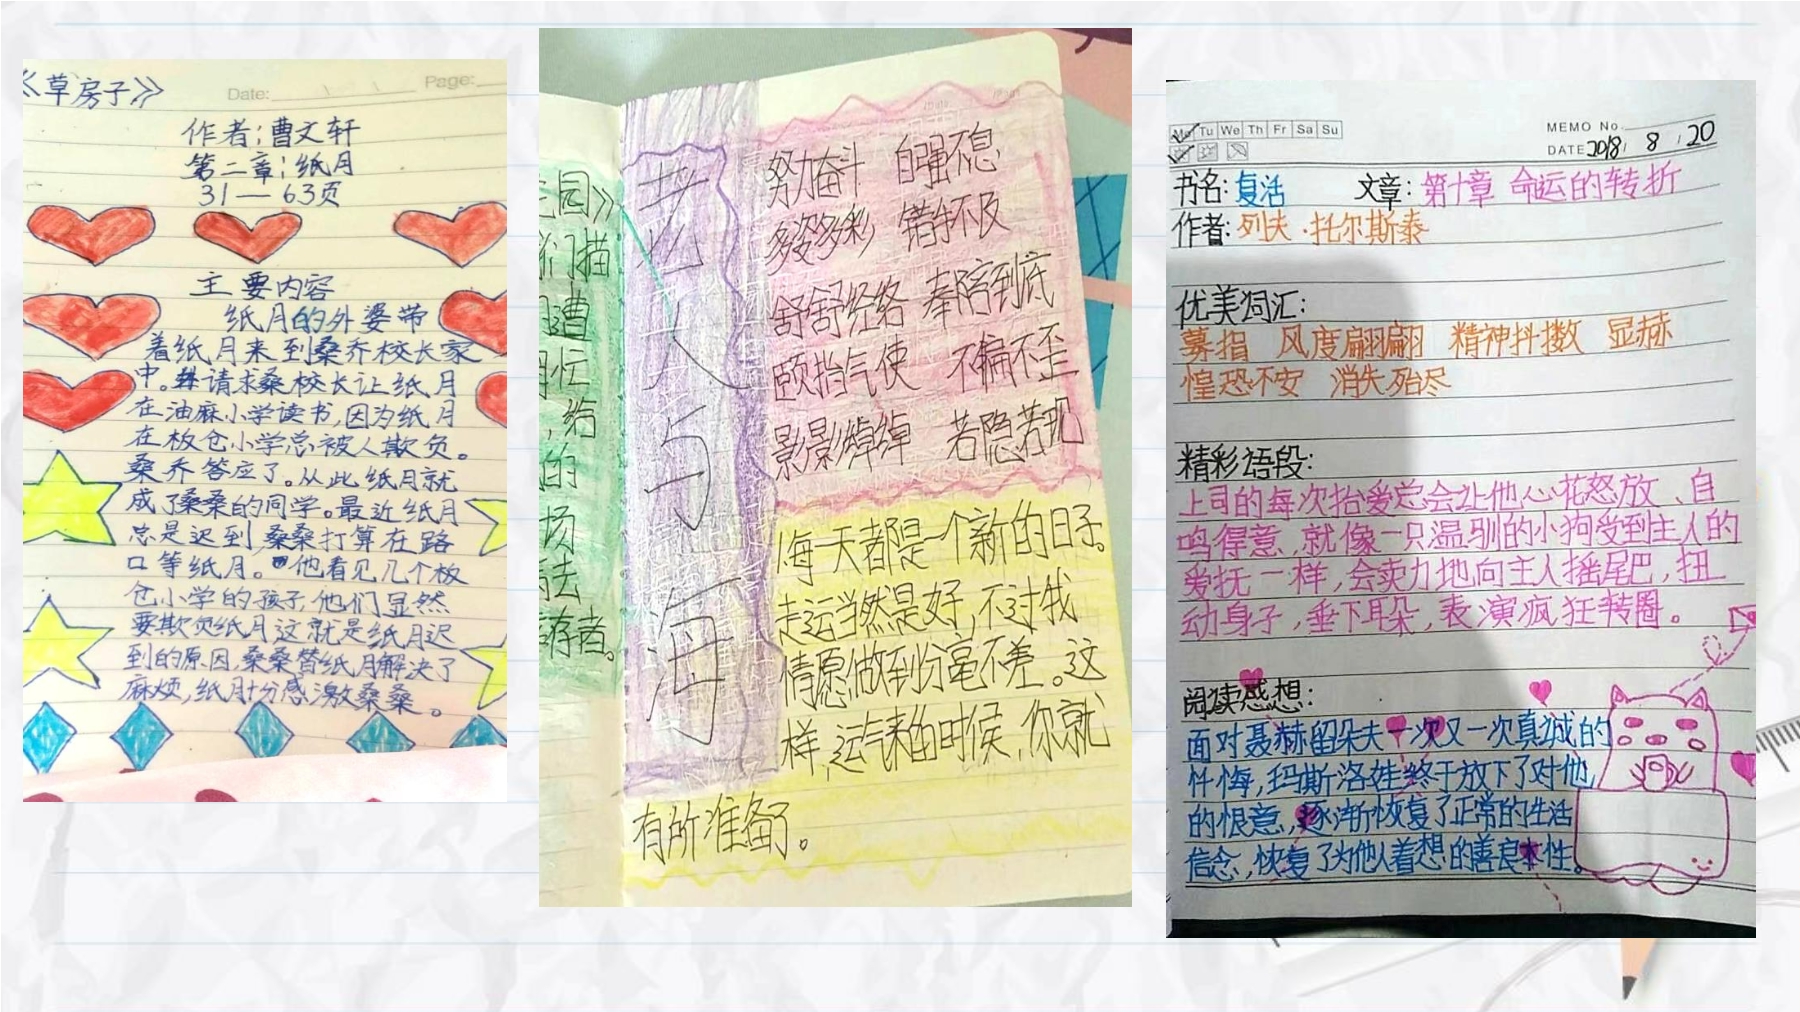 《草房子》
Date:
Page:
作者:曹文轩
第二章:纸月
31—63页
主要内容
纸月的外婆带
着纸月来到桑乔校长家
中。并请求桑校长让纸月
在油麻小学读书,因为纸月
在板仓小学总被人欺负。
桑乔答应了。从此纸月就
成了桑桑的同学。最近纸月
总是迟到,桑桑打算在路
口等纸月。他看见几个板
仓小学的孩子,他们显然
要欺负纸月这就是纸月迟
到的原因,桑桑替纸月解决了
麻烦,纸月十分感激桑桑。
园》
们描
曹
忙
,给
的
场
去
存者。
老人与海
努力奋斗 自强不息
多姿多彩 错手不及
舒舒经络 奉陪到底
颐指气使 不偏不歪
影影绰绰 若隐若现
每一天都是一个新的日子。
走运当然是好,不过我
情愿做到分毫不差。这
样,运气来的时候,你就
有所准备了。
Mo Tu We Th Fr Sa Su
MEMO No.
DATE 2018 / 8 / 20
书名:复活 文章:第十章 命运的转折
作者:列夫·托尔斯泰
优美词汇:
拇指 风度翩翩 精神抖擞 显赫
惶恐不安 消失殆尽
精彩语段:
上司的每次抬爱总会让他心花怒放、自
鸣得意,就像一只温驯的小狗受到主人的
爱抚一样,会卖力地向主人摇尾巴,扭
动身子,垂下耳朵,表演疯狂转圈。
阅读感想:
面对聂赫留朵夫一次又一次真诚的
忏悔,玛斯洛娃终于放下了对他
的恨意,逐渐恢复了正常的生活
信念,恢复了为他人着想的善良本性。